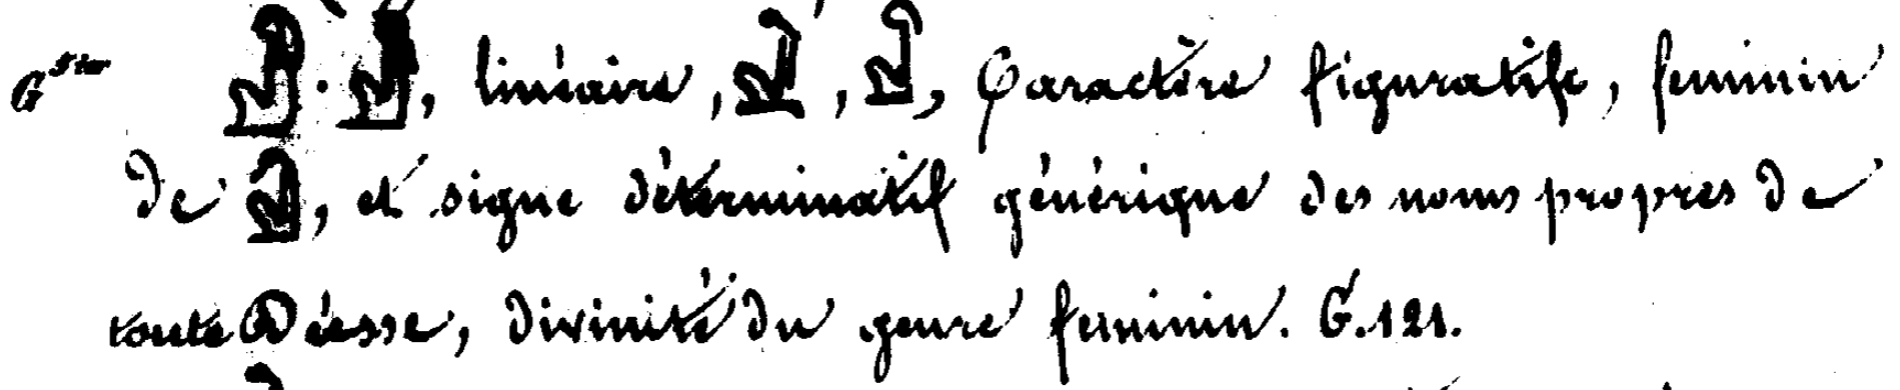 G, linéaire, , , Caractère figuratif, feminin
de , et signe déterminatif générique des noms propres de
toute Déesse, divinité du genre feminin. G. 121.